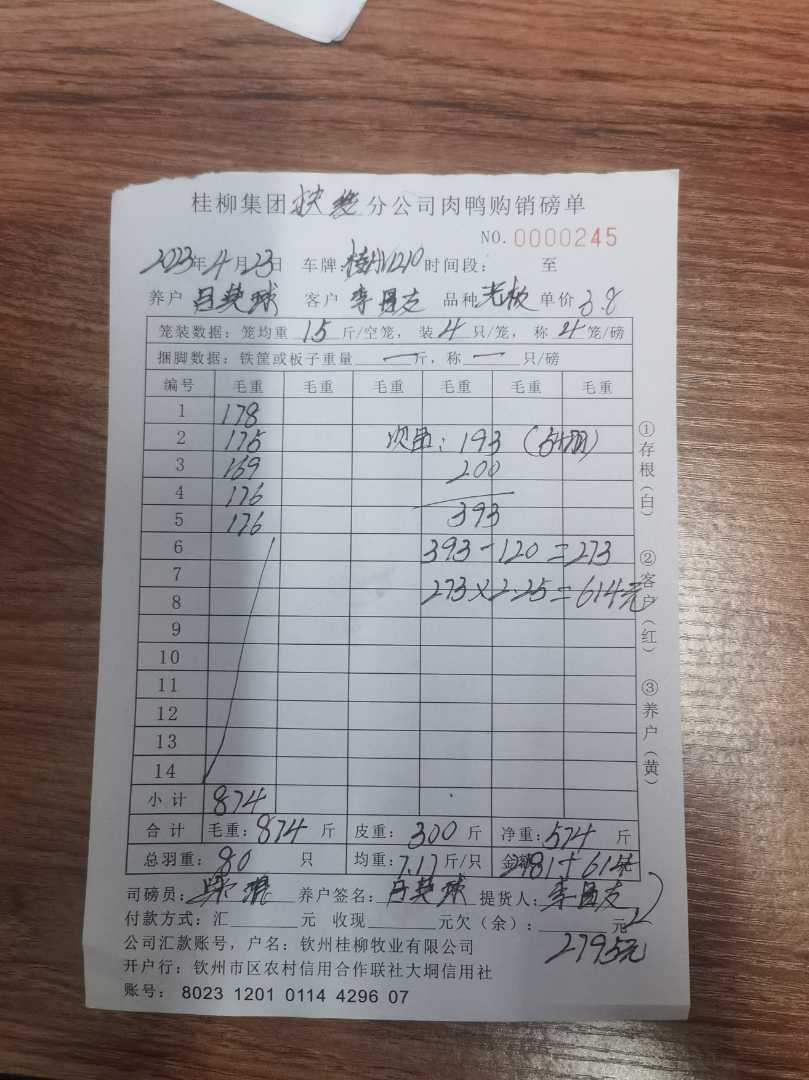 桂柳集团扶绥分公司肉鸭购销磅单
NO.0000245
2023年4月23日 车牌: 时间段: 至
养户 吕英球 客户 李国友 品种 老板 单价 3.8
笼装数据: 笼均重 15 斤/空笼, 装 4 只/笼, 称 4 笼/磅
捆脚数据: 铁筐或板子重量 一 斤, 称 一 只/磅
编号 毛重 毛重 毛重 毛重 毛重 毛重
1 178
2 175 次品: 193
3 169 200
4 176
5 176 393
6 393-120=273
7
8 273×2.25=614元
9
10
11
12
13
14
小计 874
合计 毛重: 874 斤 皮重: 300 斤 净重: 574 斤
总羽重: 80 只 均重: 7.17 斤/只 金额: 2181+614
司磅员: 养户签名: 吕英球 提货人: 李国友
付款方式: 汇 元 收现 元欠(余): 元
2795元
公司汇款账号, 户名: 钦州桂柳牧业有限公司
开户行: 钦州市区农村信用合作联社大垌信用社
账号: 8023 1201 0114 4296 07
①存根(白) ②客户(红) ③养户(黄)